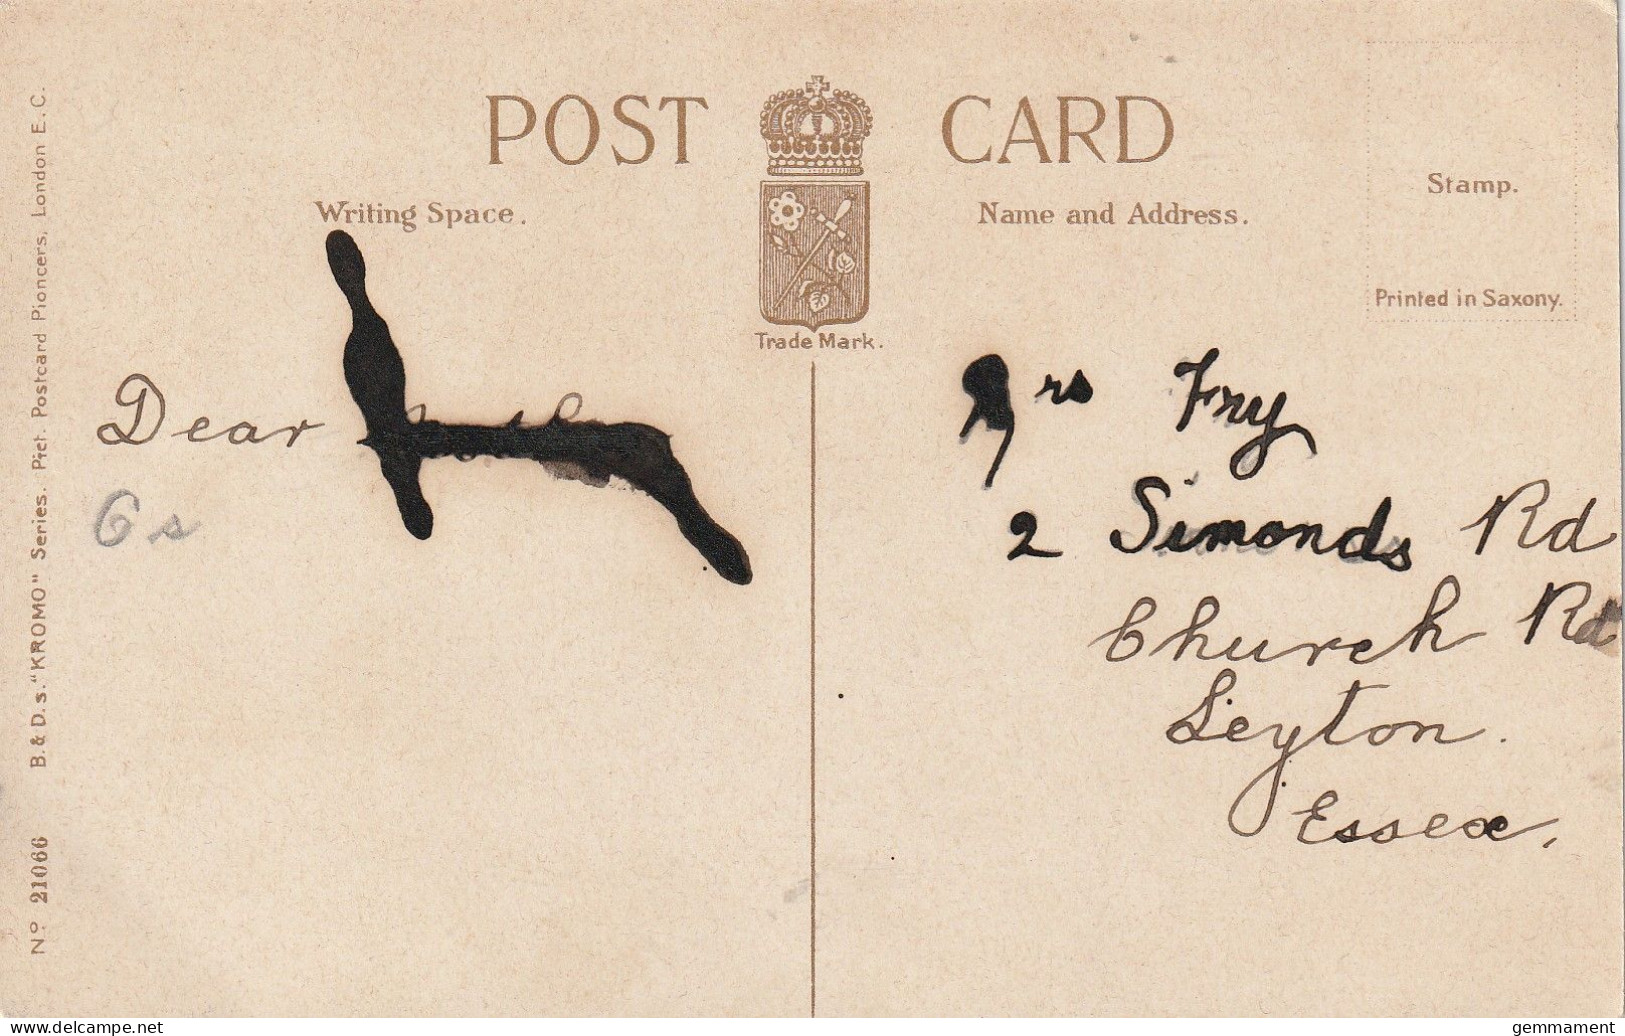 POST CARD
Writing Space.
Name and Address.
Stamp.
Printed in Saxony.
Trade Mark.
Dear
6s
Mrs Fry
2 Simonds Rd
Church Rd
Leyton.
Essex,
Nº 21066 B. & D.s. "KROMO" Series. Pict. Postcard Pioneers, London E.C.
www.delcampe.net
gemmament